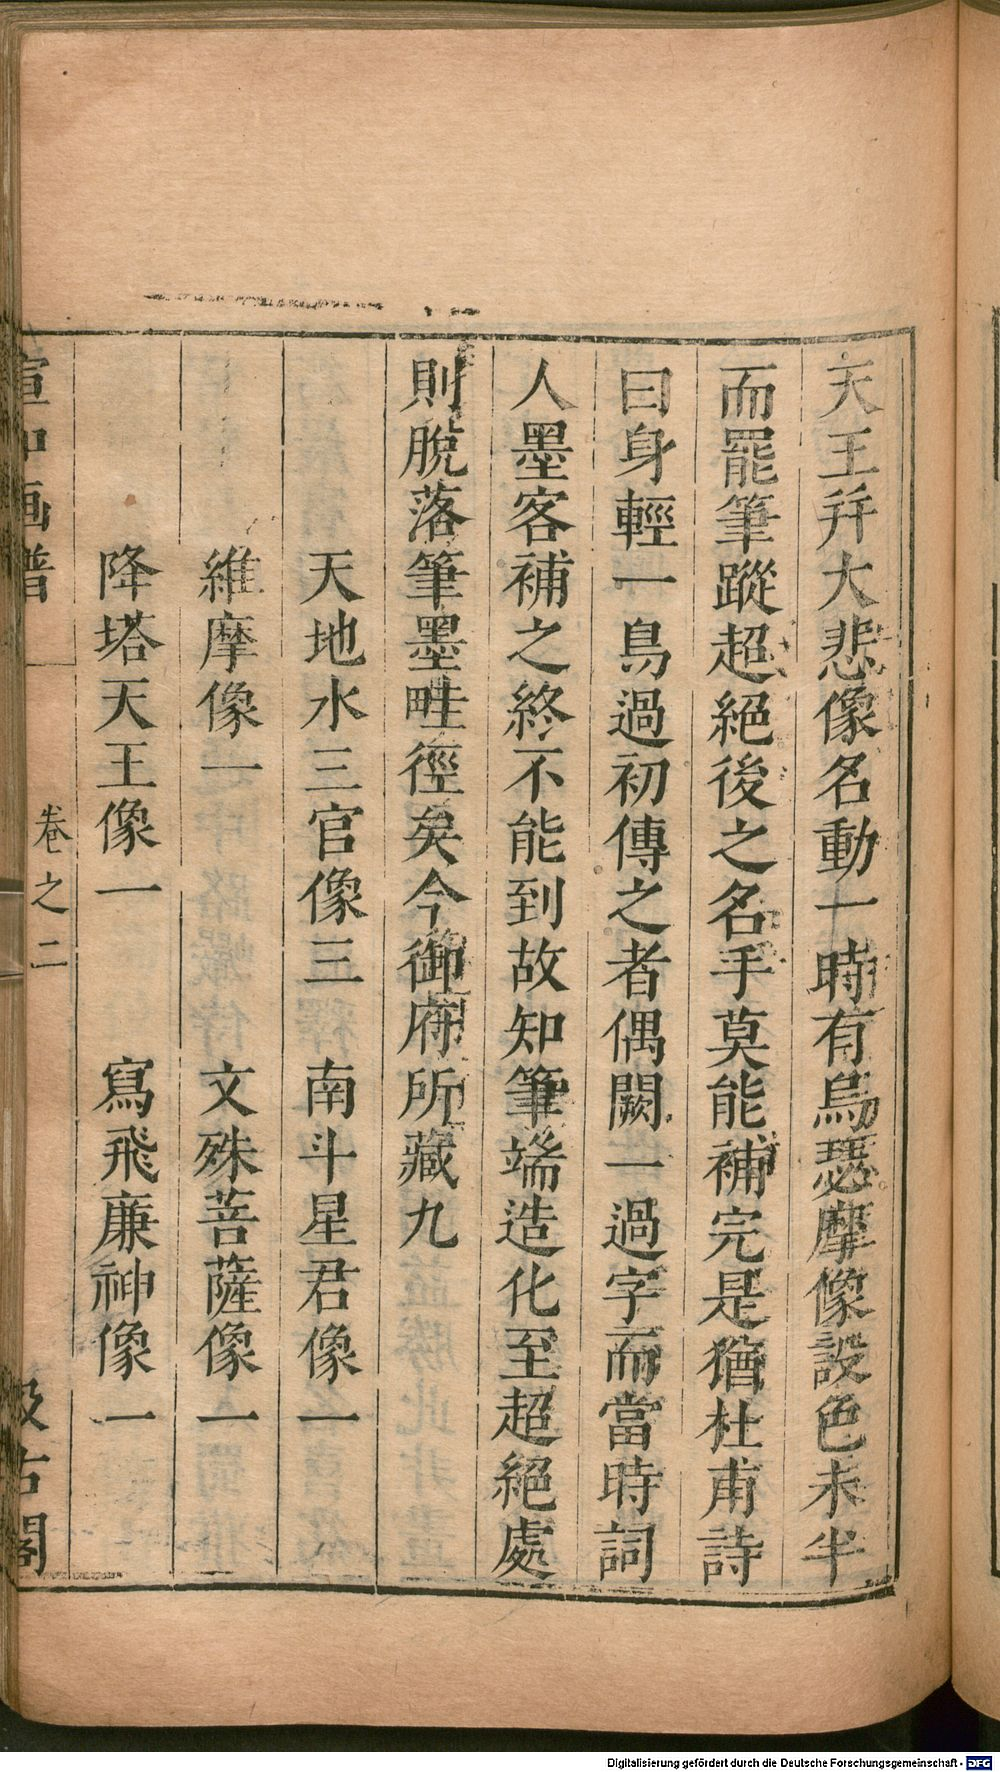 天王幷大悲像名動一時有烏瑟摩像設色未半
而罷筆蹤超絕後之名手莫能補完是猶杜甫詩
曰身輕一鳥過初傳之者偶闕一過字而當時詞
人墨客補之終不能到故知筆端造化至超絕處
則脫落筆墨畦徑矣今御府所藏九
天地水三官像三 南斗星君像一
維摩像一 文殊菩薩像一
降塔天王像一 寫飛廉神像一
宣和画譜 卷之二 汲古閣
Digitalisierung gefördert durch die Deutsche Forschungsgemeinschaft - DFG